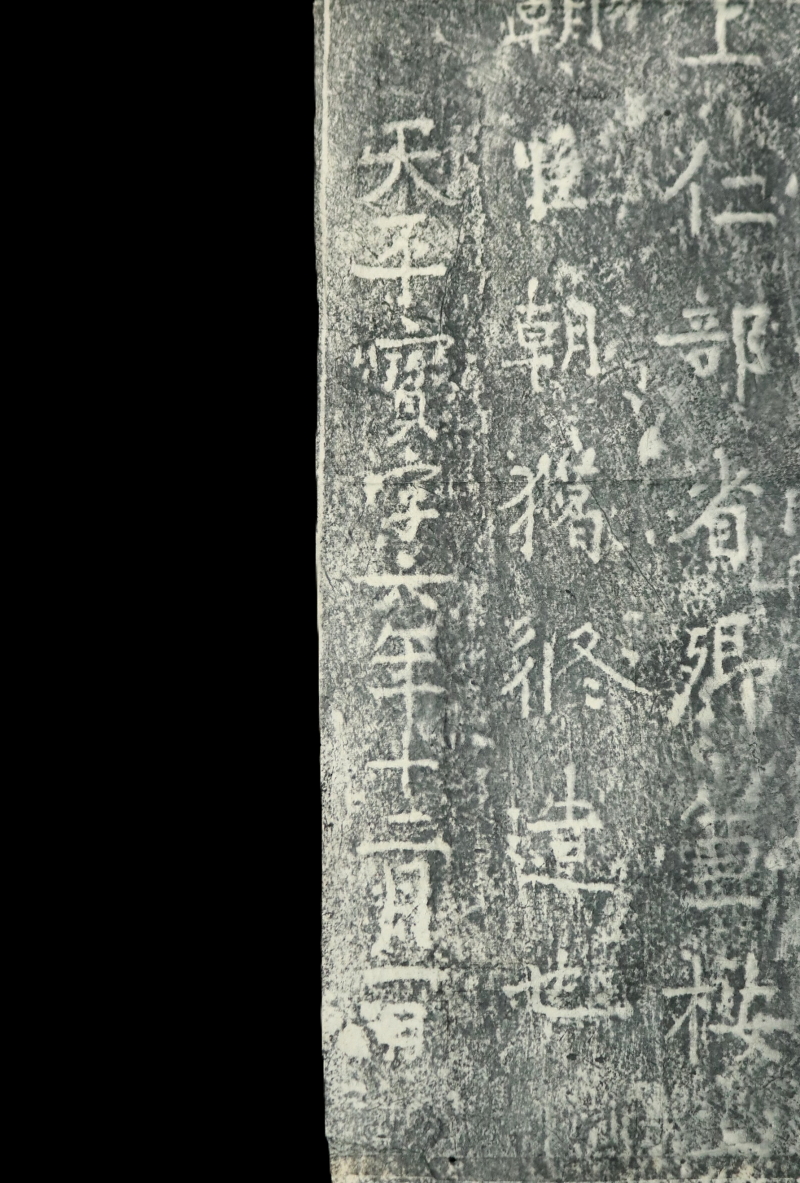 上仁部省卿兼按
朝臣朝獦修造也
天平寶字六年十二月一日